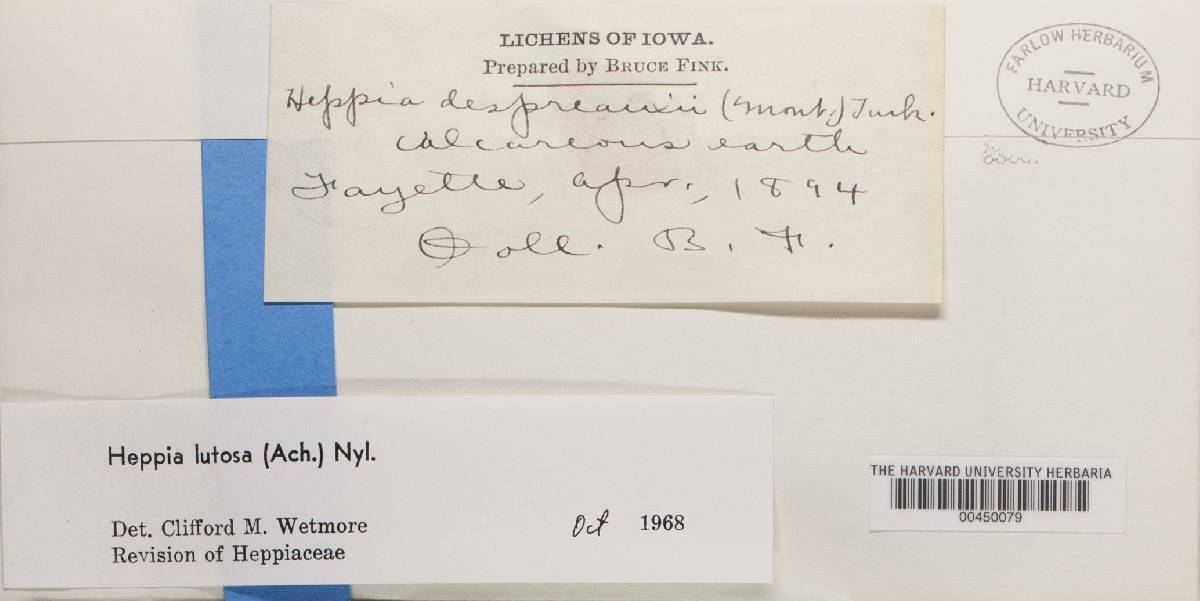 LICHENS OF IOWA.
Prepared by BRUCE FINK.
Heppia despreauxii (Mont.) Tuck.
calcareous earth
Fayette, Apr., 1894
Coll. B. F.
FARLOW HERBARIUM
HARVARD
UNIVERSITY
Heppia lutosa (Ach.) Nyl.
Det. Clifford M. Wetmore Oct 1968
Revision of Heppiaceae
THE HARVARD UNIVERSITY HERBARIA
00450079